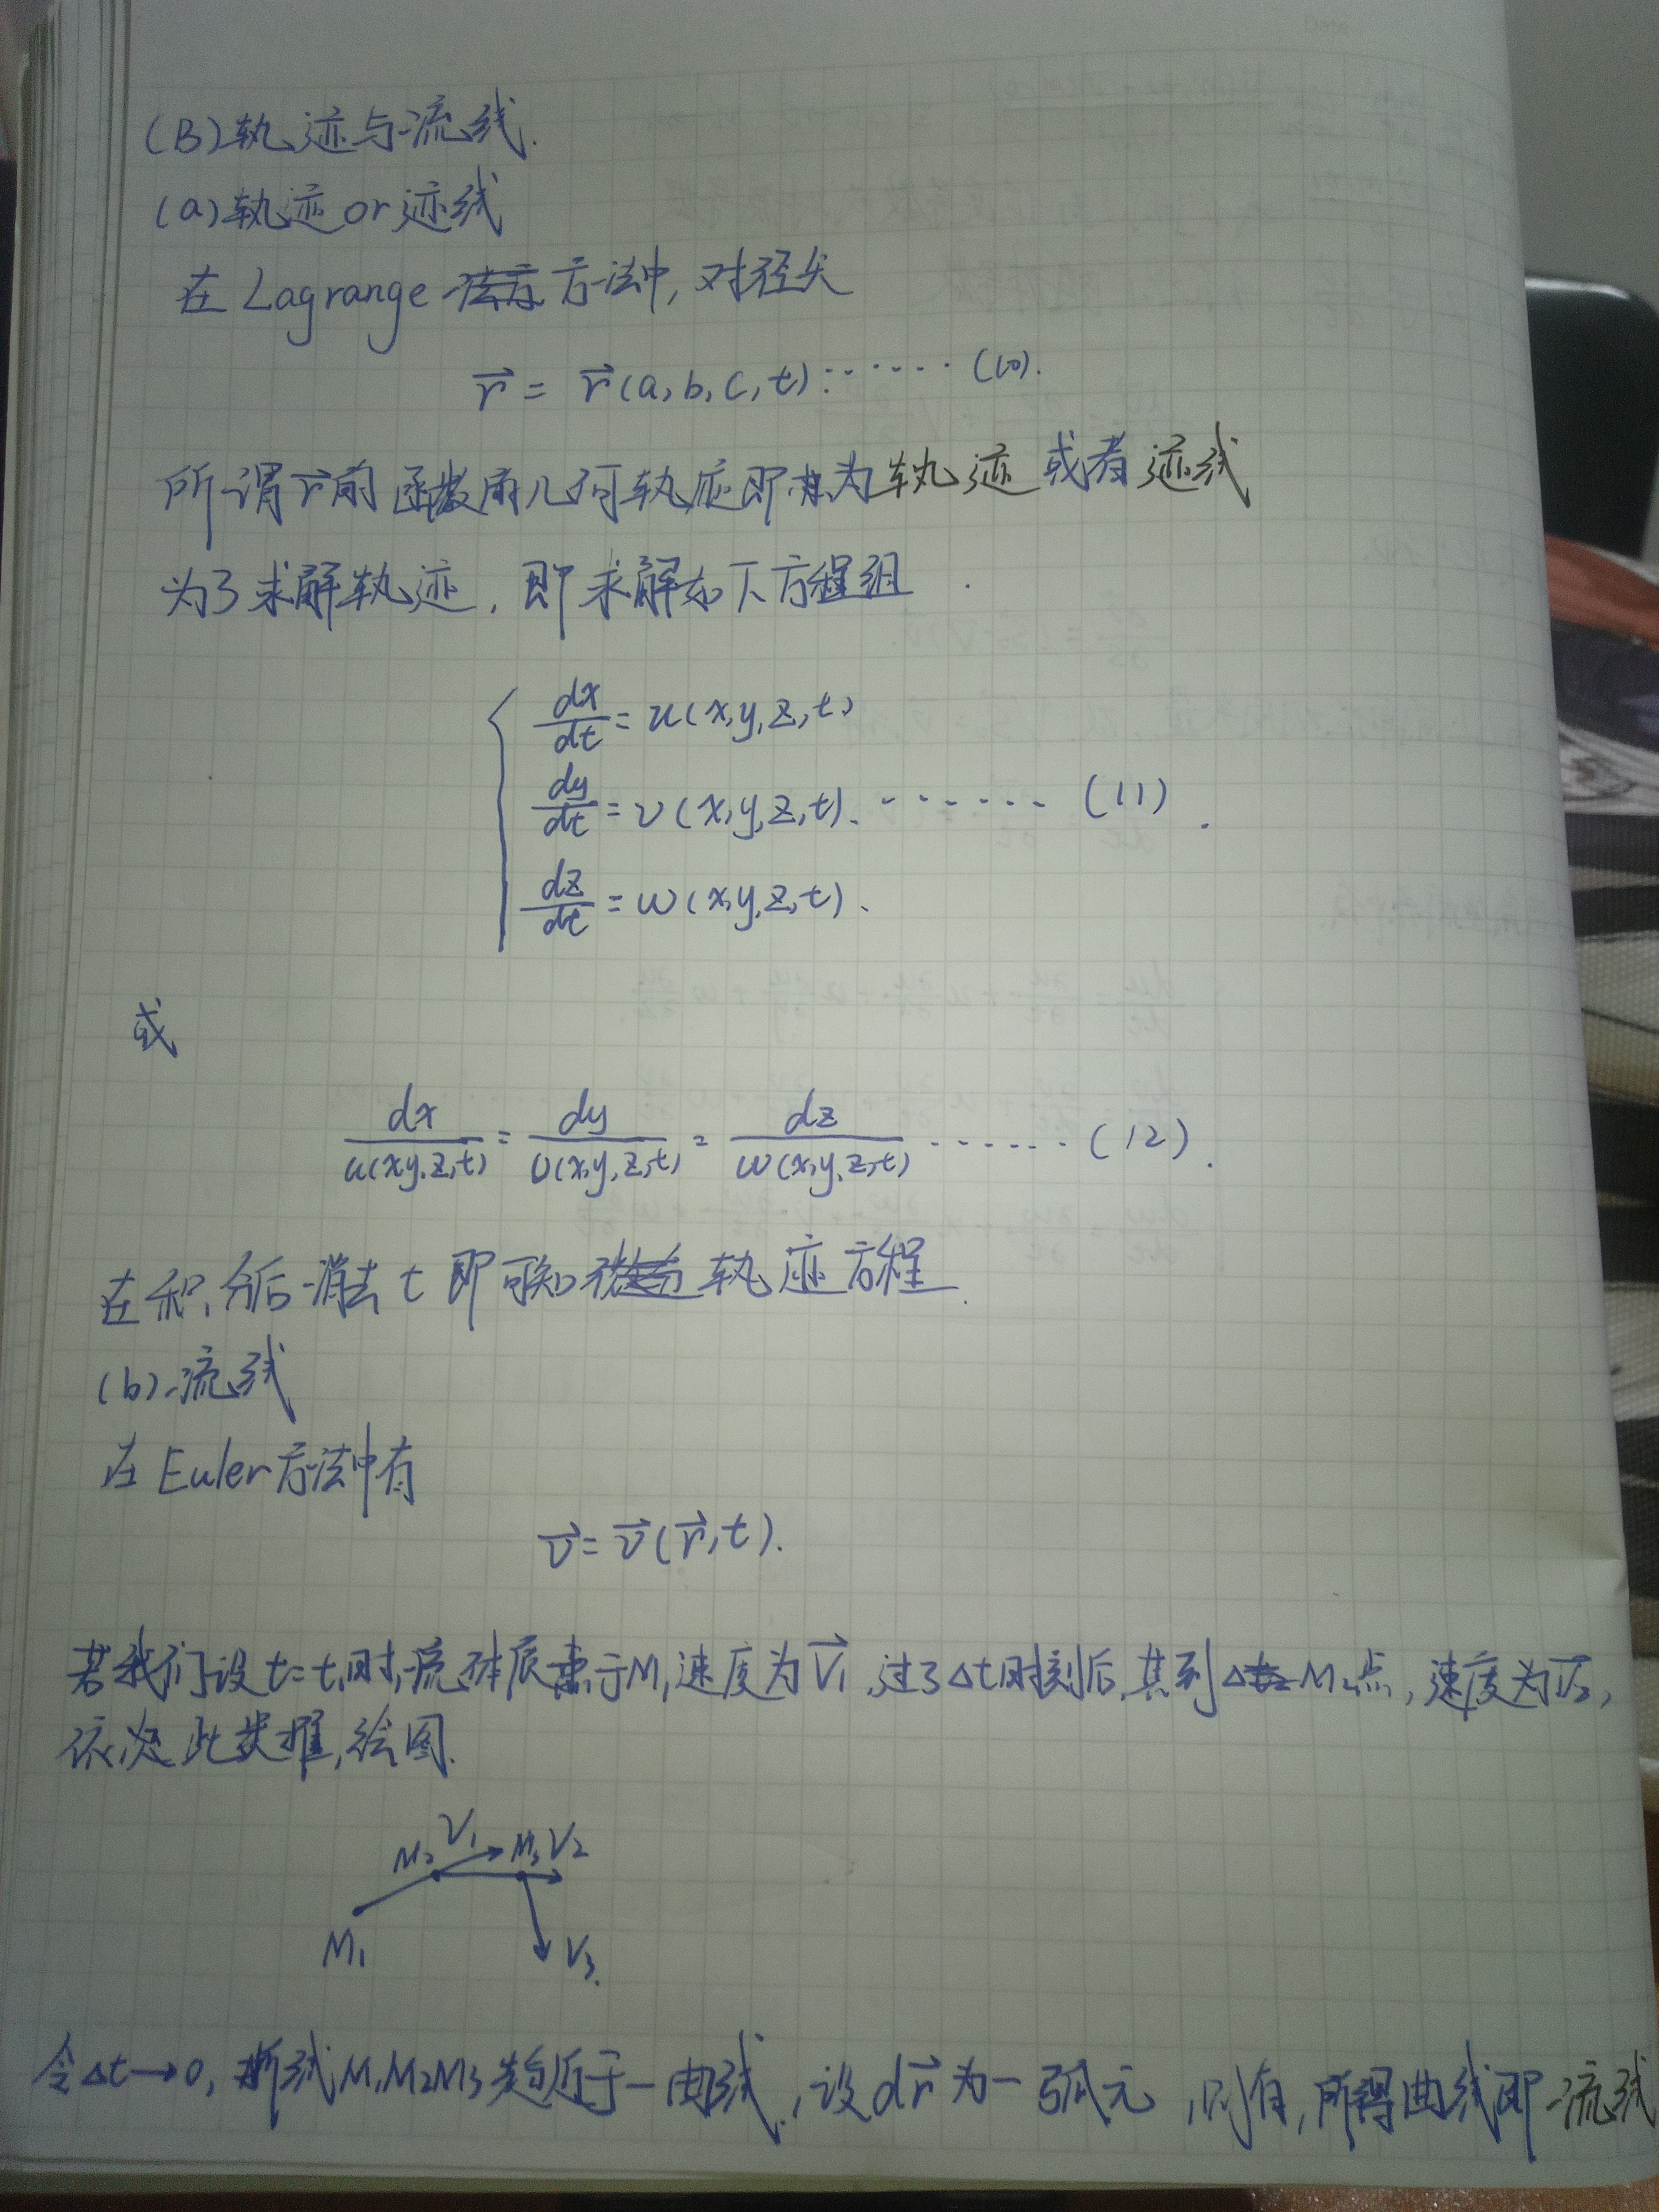 (B)轨迹与流线.
(a)轨迹or迹线
在Lagrange 方法中,对径矢
r⃗ = r⃗(a,b,c,t)⋯⋯(10).
所谓r⃗的函数的几何轨迹即为轨迹或者迹线
为了求解轨迹,即求解如下方程组
dx/dt = u(x,y,z,t)
dy/dt = v(x,y,z,t).⋯⋯(11).
dz/dt = w(x,y,z,t).
或
dx/u(x,y,z,t) = dy/v(x,y,z,t) = dz/w(x,y,z,t) ⋯⋯(12).
在积分后消去t即可知轨迹方程.
(b)流线
在Euler方法中有
v⃗ = v⃗(r⃗,t).
若我们设t=t₁时,流体质于M₁速度为V⃗₁,过了Δt时刻后,其到M₂点,速度为V⃗₂,
依此类推,绘图.
M₂ V₁ M₃ V₂
M₁ V₃.
令Δt→0,折线M₁M₂M₃趋近于一曲线,设dr⃗为一弧元,则有,所得曲线即流线